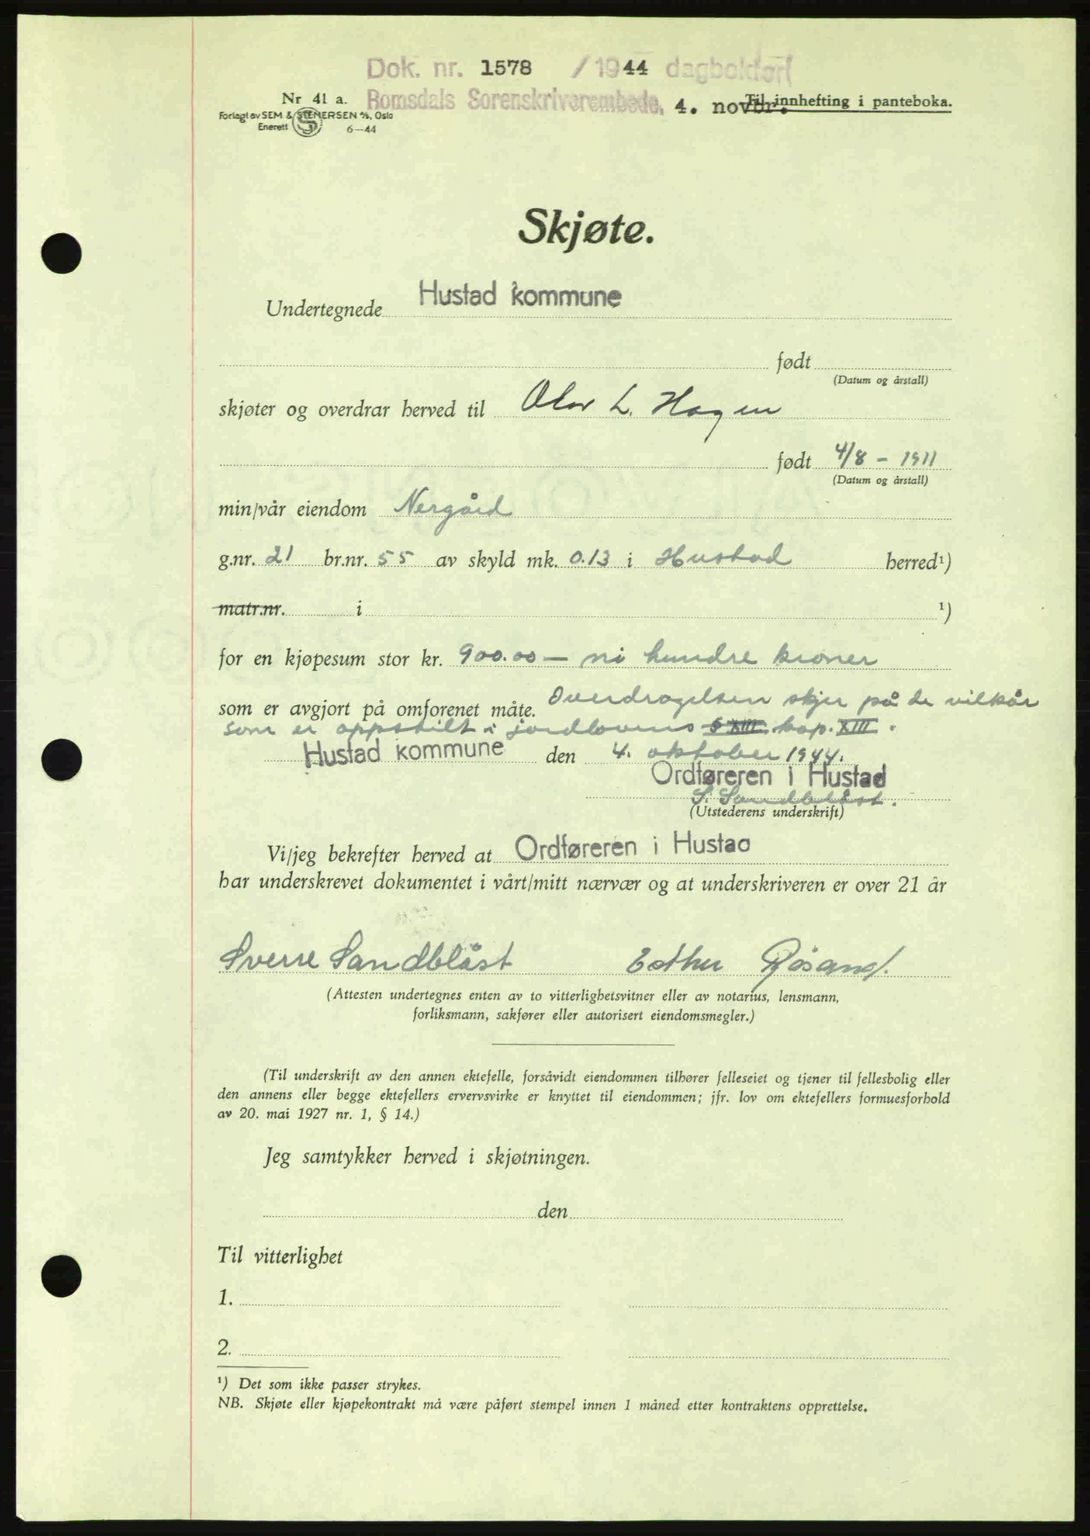 Dok. nr. 1578 /1944 dagbokført
Nr 41 a. Romsdals Sorenskriverembede, 4. novbr. Til innhefting i panteboka.
Forlagt av SEM & STENERSEN A/S, Oslo
Enerett 6-44
Skjøte.
Undertegnede Hustad kommune
født
(Datum og årstall)
skjøter og overdrar herved til Olav L. Hagen
født 4/8 - 1911
(Datum og årstall)
min/vår eiendom Nergård
g.nr. 21 br.nr. 55 av skyld mk. 0.13 i Hustad herred¹)
matr.nr. i ¹)
for en kjøpesum stor kr. 900.00 — ni hundre kroner
som er avgjort på omforenet måte. Overdragelsen skjer på de vilkår
som er oppstilt i jordlovens § XIII kap. XIII.
Hustad kommune den 4. oktober 1944.
Ordføreren i Hustad
S. Sandblåst.
(Utstederens underskrift)
Vi/jeg bekrefter herved at Ordføreren i Hustad
har underskrevet dokumentet i vårt/mitt nærvær og at underskriveren er over 21 år
Sverre Sandblåst Esther Røsand.
(Attesten undertegnes enten av to vitterlighetsvitner eller av notarius, lensmann,
forliksmann, sakfører eller autorisert eiendomsmegler.)
(Til underskrift av den annen ektefelle, forsåvidt eiendommen tilhører felleseiet og tjener til fellesbolig eller
den annens eller begge ektefellers ervervsvirke er knyttet til eiendommen; jfr. lov om ektefellers formuesforhold
av 20. mai 1927 nr. 1, § 14.)
Jeg samtykker herved i skjøtningen.
den
Til vitterlighet
1.
2.
¹) Det som ikke passer strykes.
NB. Skjøte eller kjøpekontrakt må være påført stempel innen 1 måned etter kontraktens opprettelse.